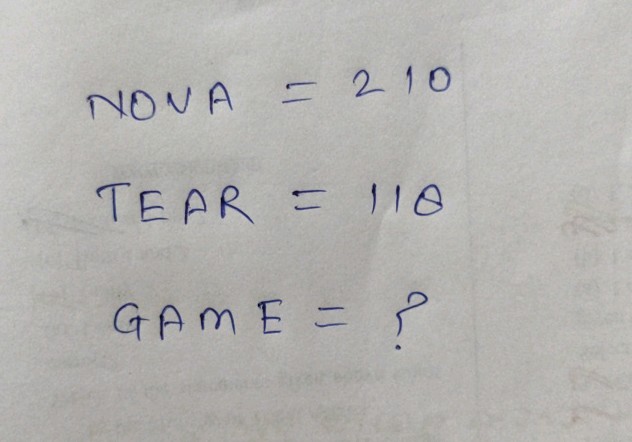 NOVA = 210
TEAR = 110
GAME = ?